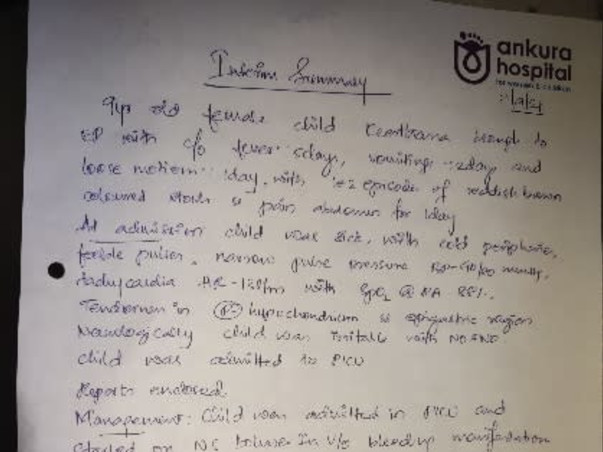 ankura
hospital
Interim Summary
9yr old female child brought to
ER with c/o fever 5days, vomiting 2days and
loose motion: 1day, with 1-2 episode of reddish brown
coloured stools & pain abdomen for 1day
At admission child was sick, with cold peripheries,
feeble pulses, narrow pulse pressure
tachycardia HR- with SpO2 @ RA
Tenderness in (R) hypochondrium & epigastric region
Neurologically child was irritable with NO FND
child was admitted to PICU
Reports enclosed
Management: Child was admitted in PICU and
Started on NS bolus In v/o bleeding manifestation